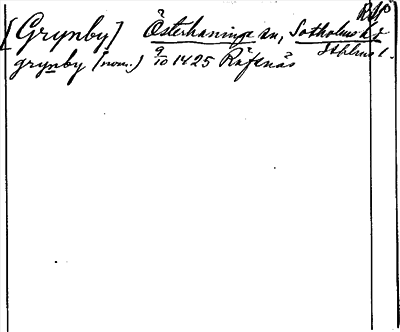 [Grynby] Österhaninge sn, Sotholms hd
Sthlms l.
grynby (nom.) 9/10 1425 Räfsnäs